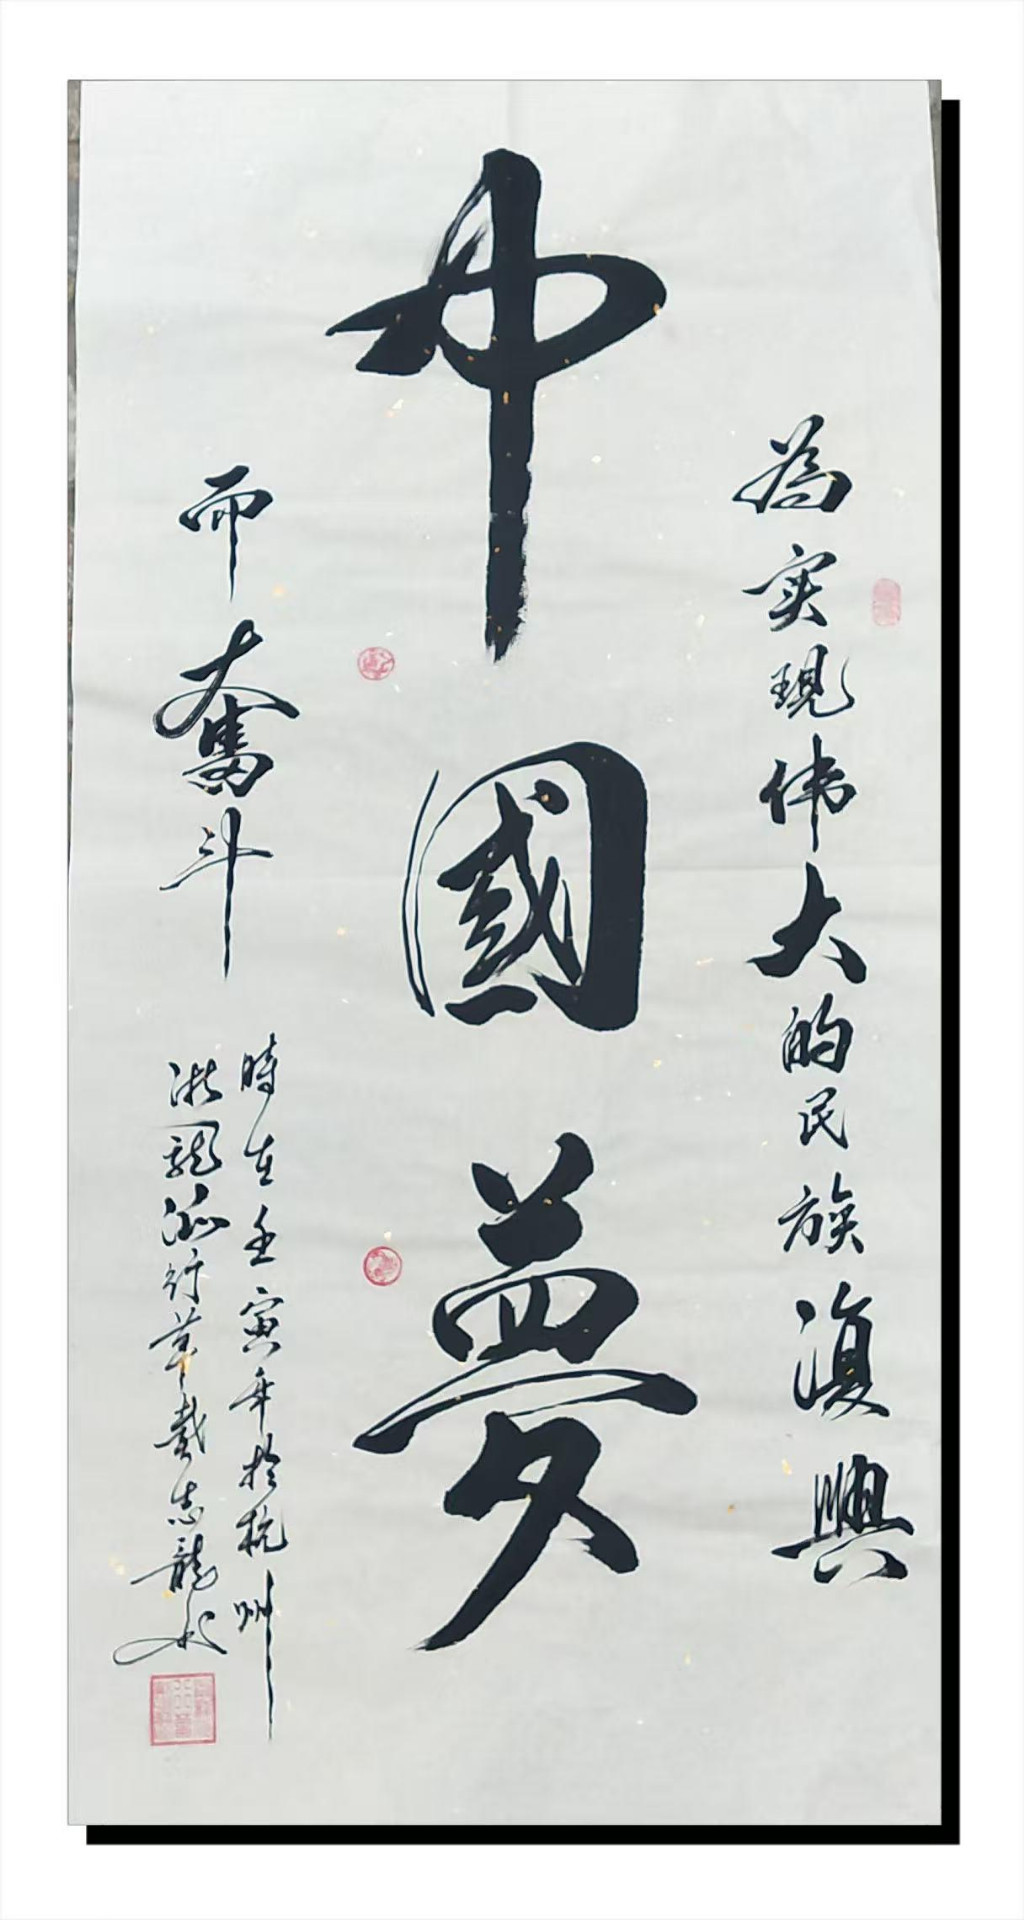 為实現伟大的民族復興
中國夢
而奮斗
時在壬寅年於杭州
浙龍派行草戴志龍书